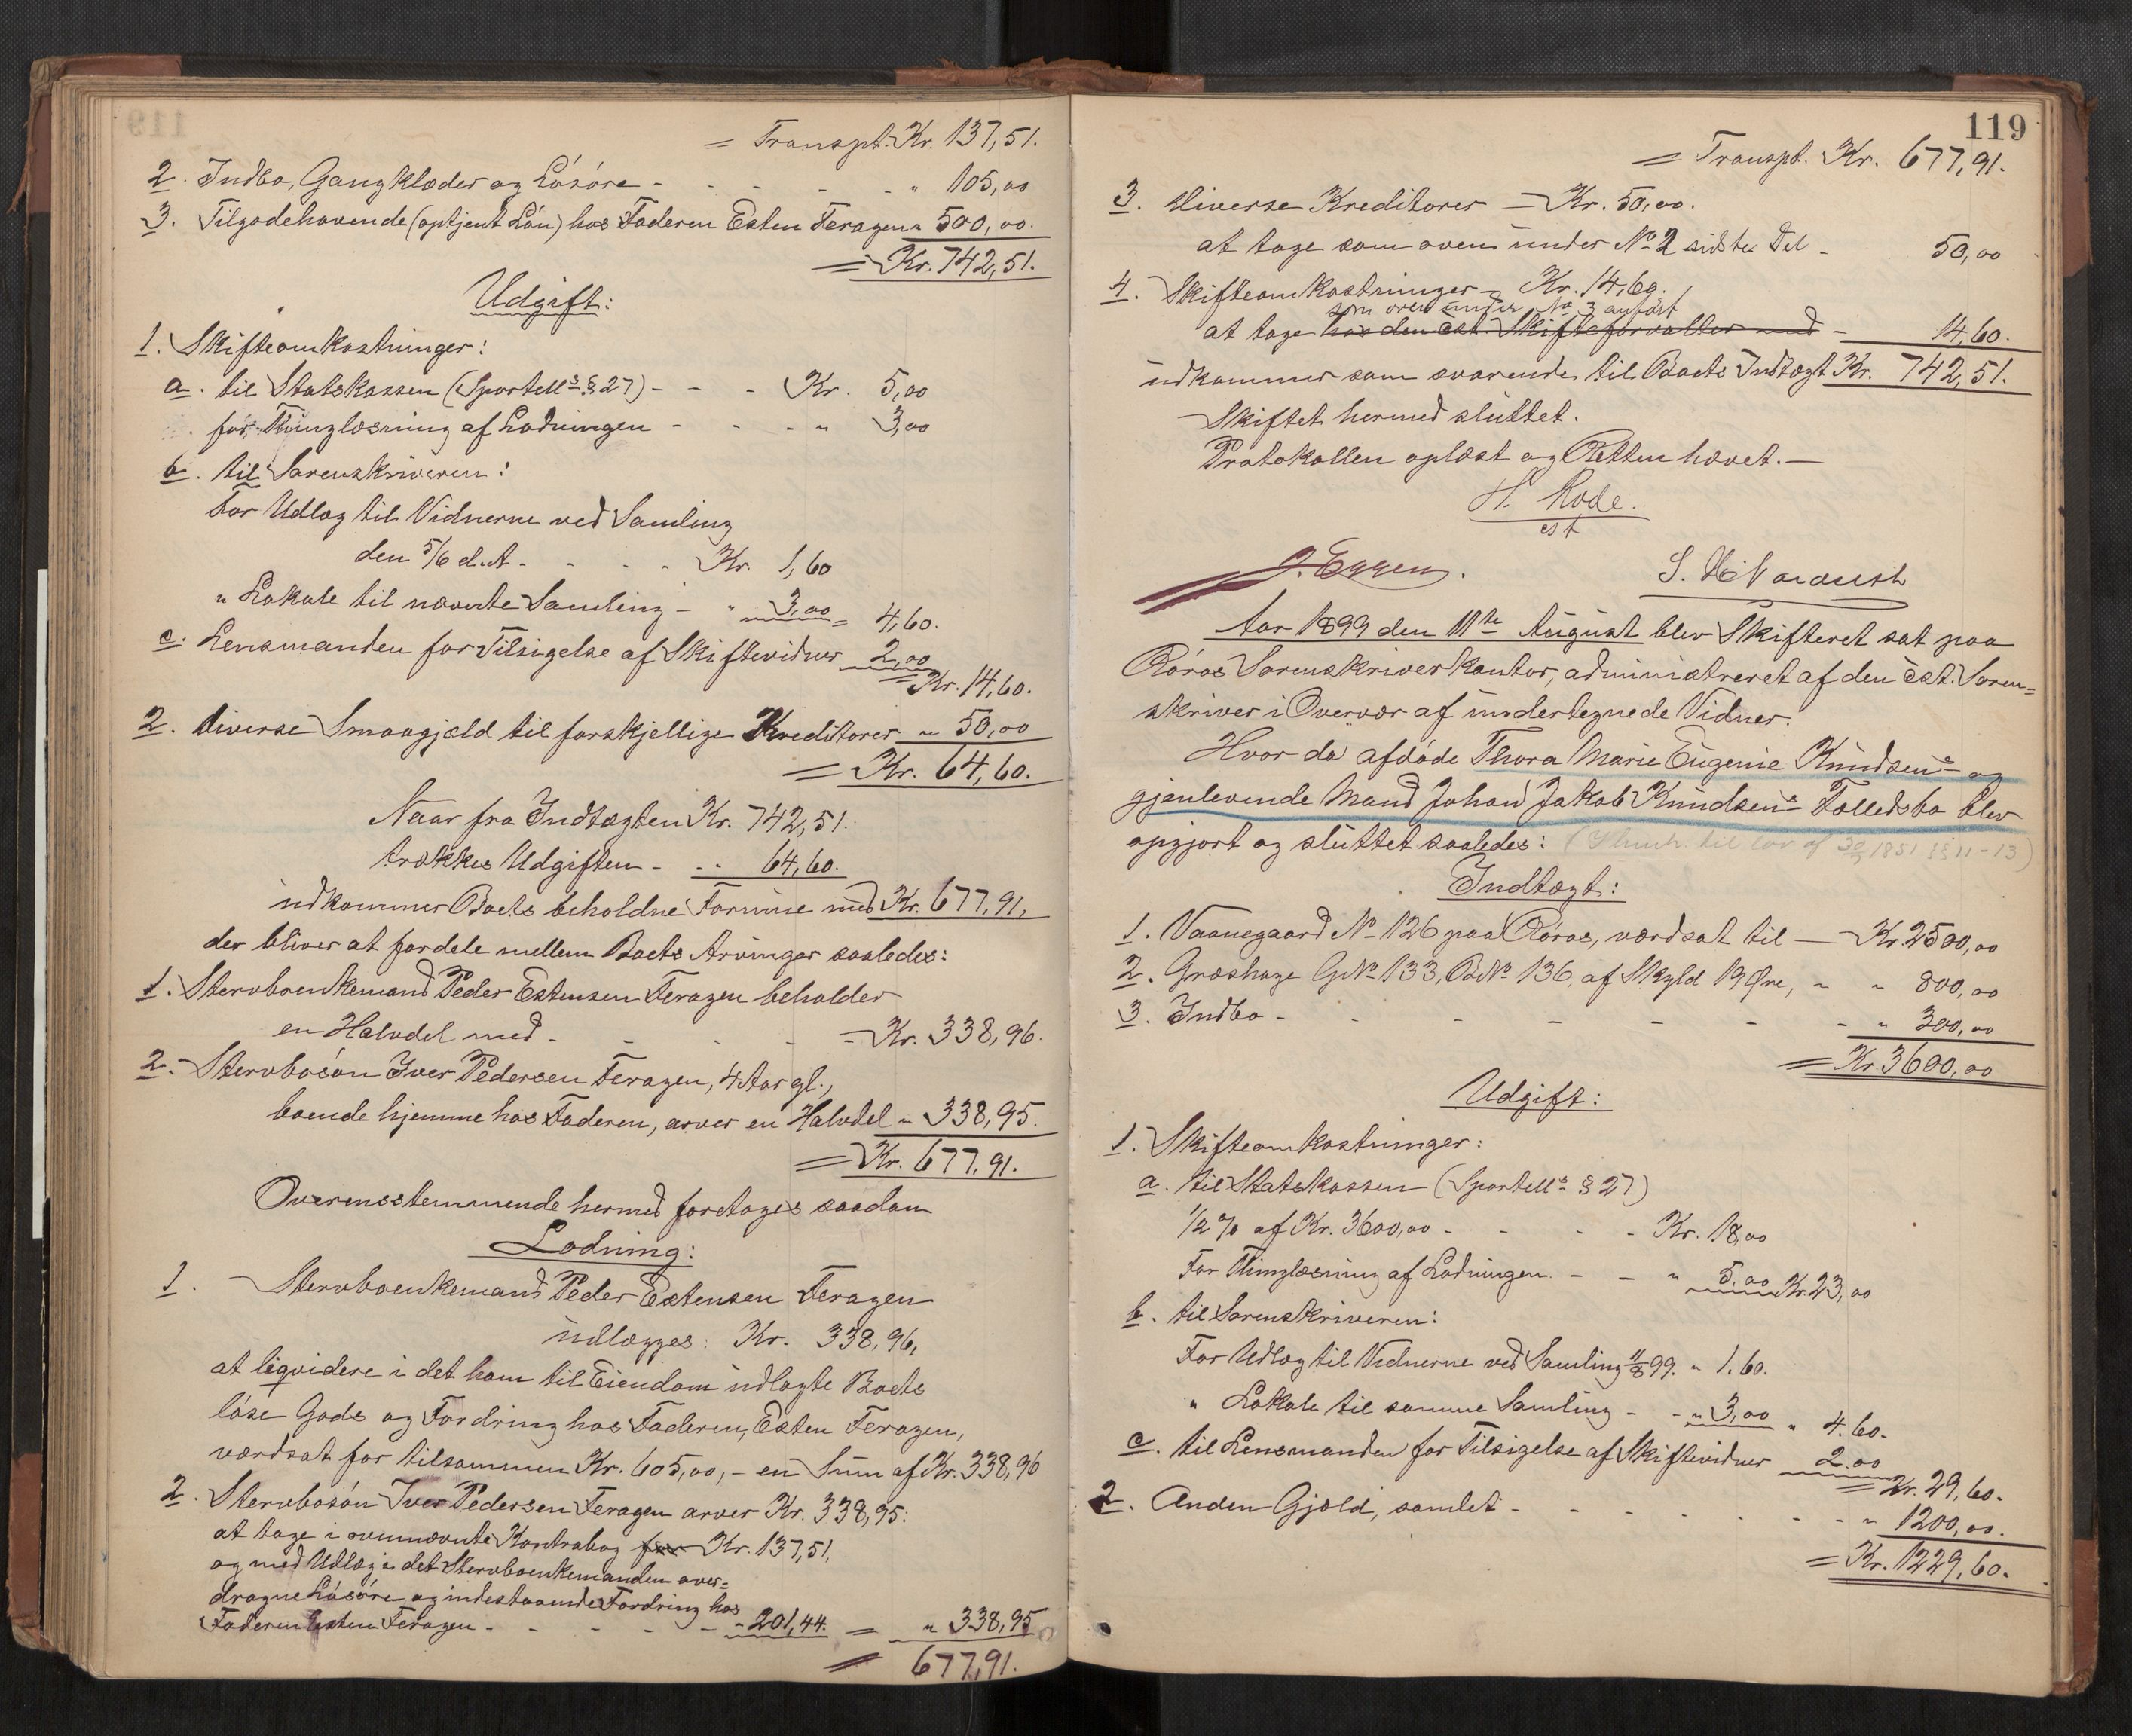 = Transpt. Kr. 137,51.
2. Indbo, Gangklæder og Løsøre - - - - - " 105,00
3. Tilgodehavende (optjent Løn) hos Faderen Esten Feragen " 500,00.
= Kr. 742,51.
Udgift:
1. Skifteomkostninger:
a. til Statskassen (Sportell. § 27) - - - Kr. 5,00
for Thinglæsning af Lodningen - - - " 3,00
b. til Sorenskriveren:
For Udlæg til Vidnerne ved Samling
den 5/6 d.A - - - - Kr. 1,60
" Lokale til nævnte Samling - " 3,00 = 4,60.
c. Lensmanden for Tilsigelse af Skiftevidner 2,00
= Kr. 14,60.
2. diverse Smaagjæld til forskjellige Kreditorer " 50,00
= Kr. 64,60.
Naar fra Indtægten Kr. 742,51.
trækkes Udgiften - - " 64,60.
udkommer Boets beholdne Formue med Kr. 677,91,
der bliver at fordele mellem Boets Arvinger saaledes:
1. Stervboenkemand Peder Estensen Feragen beholder
en Halvdel med - - - - = Kr. 338,96.
2. Stervbosøn Iver Pedersen Feragen, 4 Aar gl.,
boende hjemme hos Faderen, arver en Halvdel " 338,95.
= Kr. 677,91.
Overensstemmende hermed foretages saadan
Lodning:
1. Stervboenkemand Peder Estensen Feragen
udlægges: Kr. 338,96,
at liqvidere i det ham til Eiendom udlagte Boets
løse Gods og Fordring hos Faderen, Esten Feragen,
værdsat for tilsammen Kr. 605,00, - en Sum af Kr. 338,96
2. Stervbosøn Iver Pedersen Feragen arver Kr. 338,95:
at tage i ovennævnte Kontrabog for Kr. 137,51,
og med Udlæg i det Stervboenkemanden over=
dragne Løsøre og indestaaende Fordring hos
Faderen Esten Feragen - - - - - " 201,44. = " 338,95
= 677,91.
119
= Transpt. Kr. 677,91.
3. diverse Kreditorer = Kr. 50,00.
at tage som oven under No 2 sidste Del - 50,00
4. Skifteomkostninger = Kr. 14,60.
som oven under No 3 anført
at tage hos den cst. Skifteforvalter med - 14,60.
udkommer som svarende til Boets Indtægt Kr. 742,51.
Skiftet hermed sluttet.
Protokollen oplæst og Retten hævet. —
H. Rode.
cst
J. Eggen.
Aar 1899 den 11te August blev Skifteret sat paa
Røros Sorenskriverkontor, administreret af den cst. Soren=
skriver i Overvær af undertegnede Vidner.
Hvor da afdøde Thora Marie Eugenie Knudsens og
gjenlevende Mand Johan Jakob Knudsens Fælledsbo blev
opgjort og sluttet saaledes: ( til lov af 30/7 1851 §§ 11-13)
Indtægt:
1. Vaanegaard No 126 paa Røros, værdsat til — Kr. 2500,00
2. Græshage GNo 133, BNo 136, af Skyld 19 Øre, " " 800,00
3. Indbo - - - - - - - " 300,00
= Kr. 3600,00
Udgift:
1. Skifteomkostninger:
a. til Statskassen (Sportells § 27)
1/2 % af Kr. 3600,00 - - - - Kr. 18,00
For Thinglæsning af Lodningen - - " 5,00 Kr. 23,00
b. til Sorenskriveren:
For Udlæg til Vidnerne ved Samling 11/8 99. " 1.60.
" Lokale til samme Samling - - " 3,00 " 4.60.
c. til Lensmanden for Tilsigelse af Skiftevidner 2.00
= Kr. 29,60.
2. Anden Gjæld, samlet - - - - - - - " 1200,00.
= Kr. 1229,60.